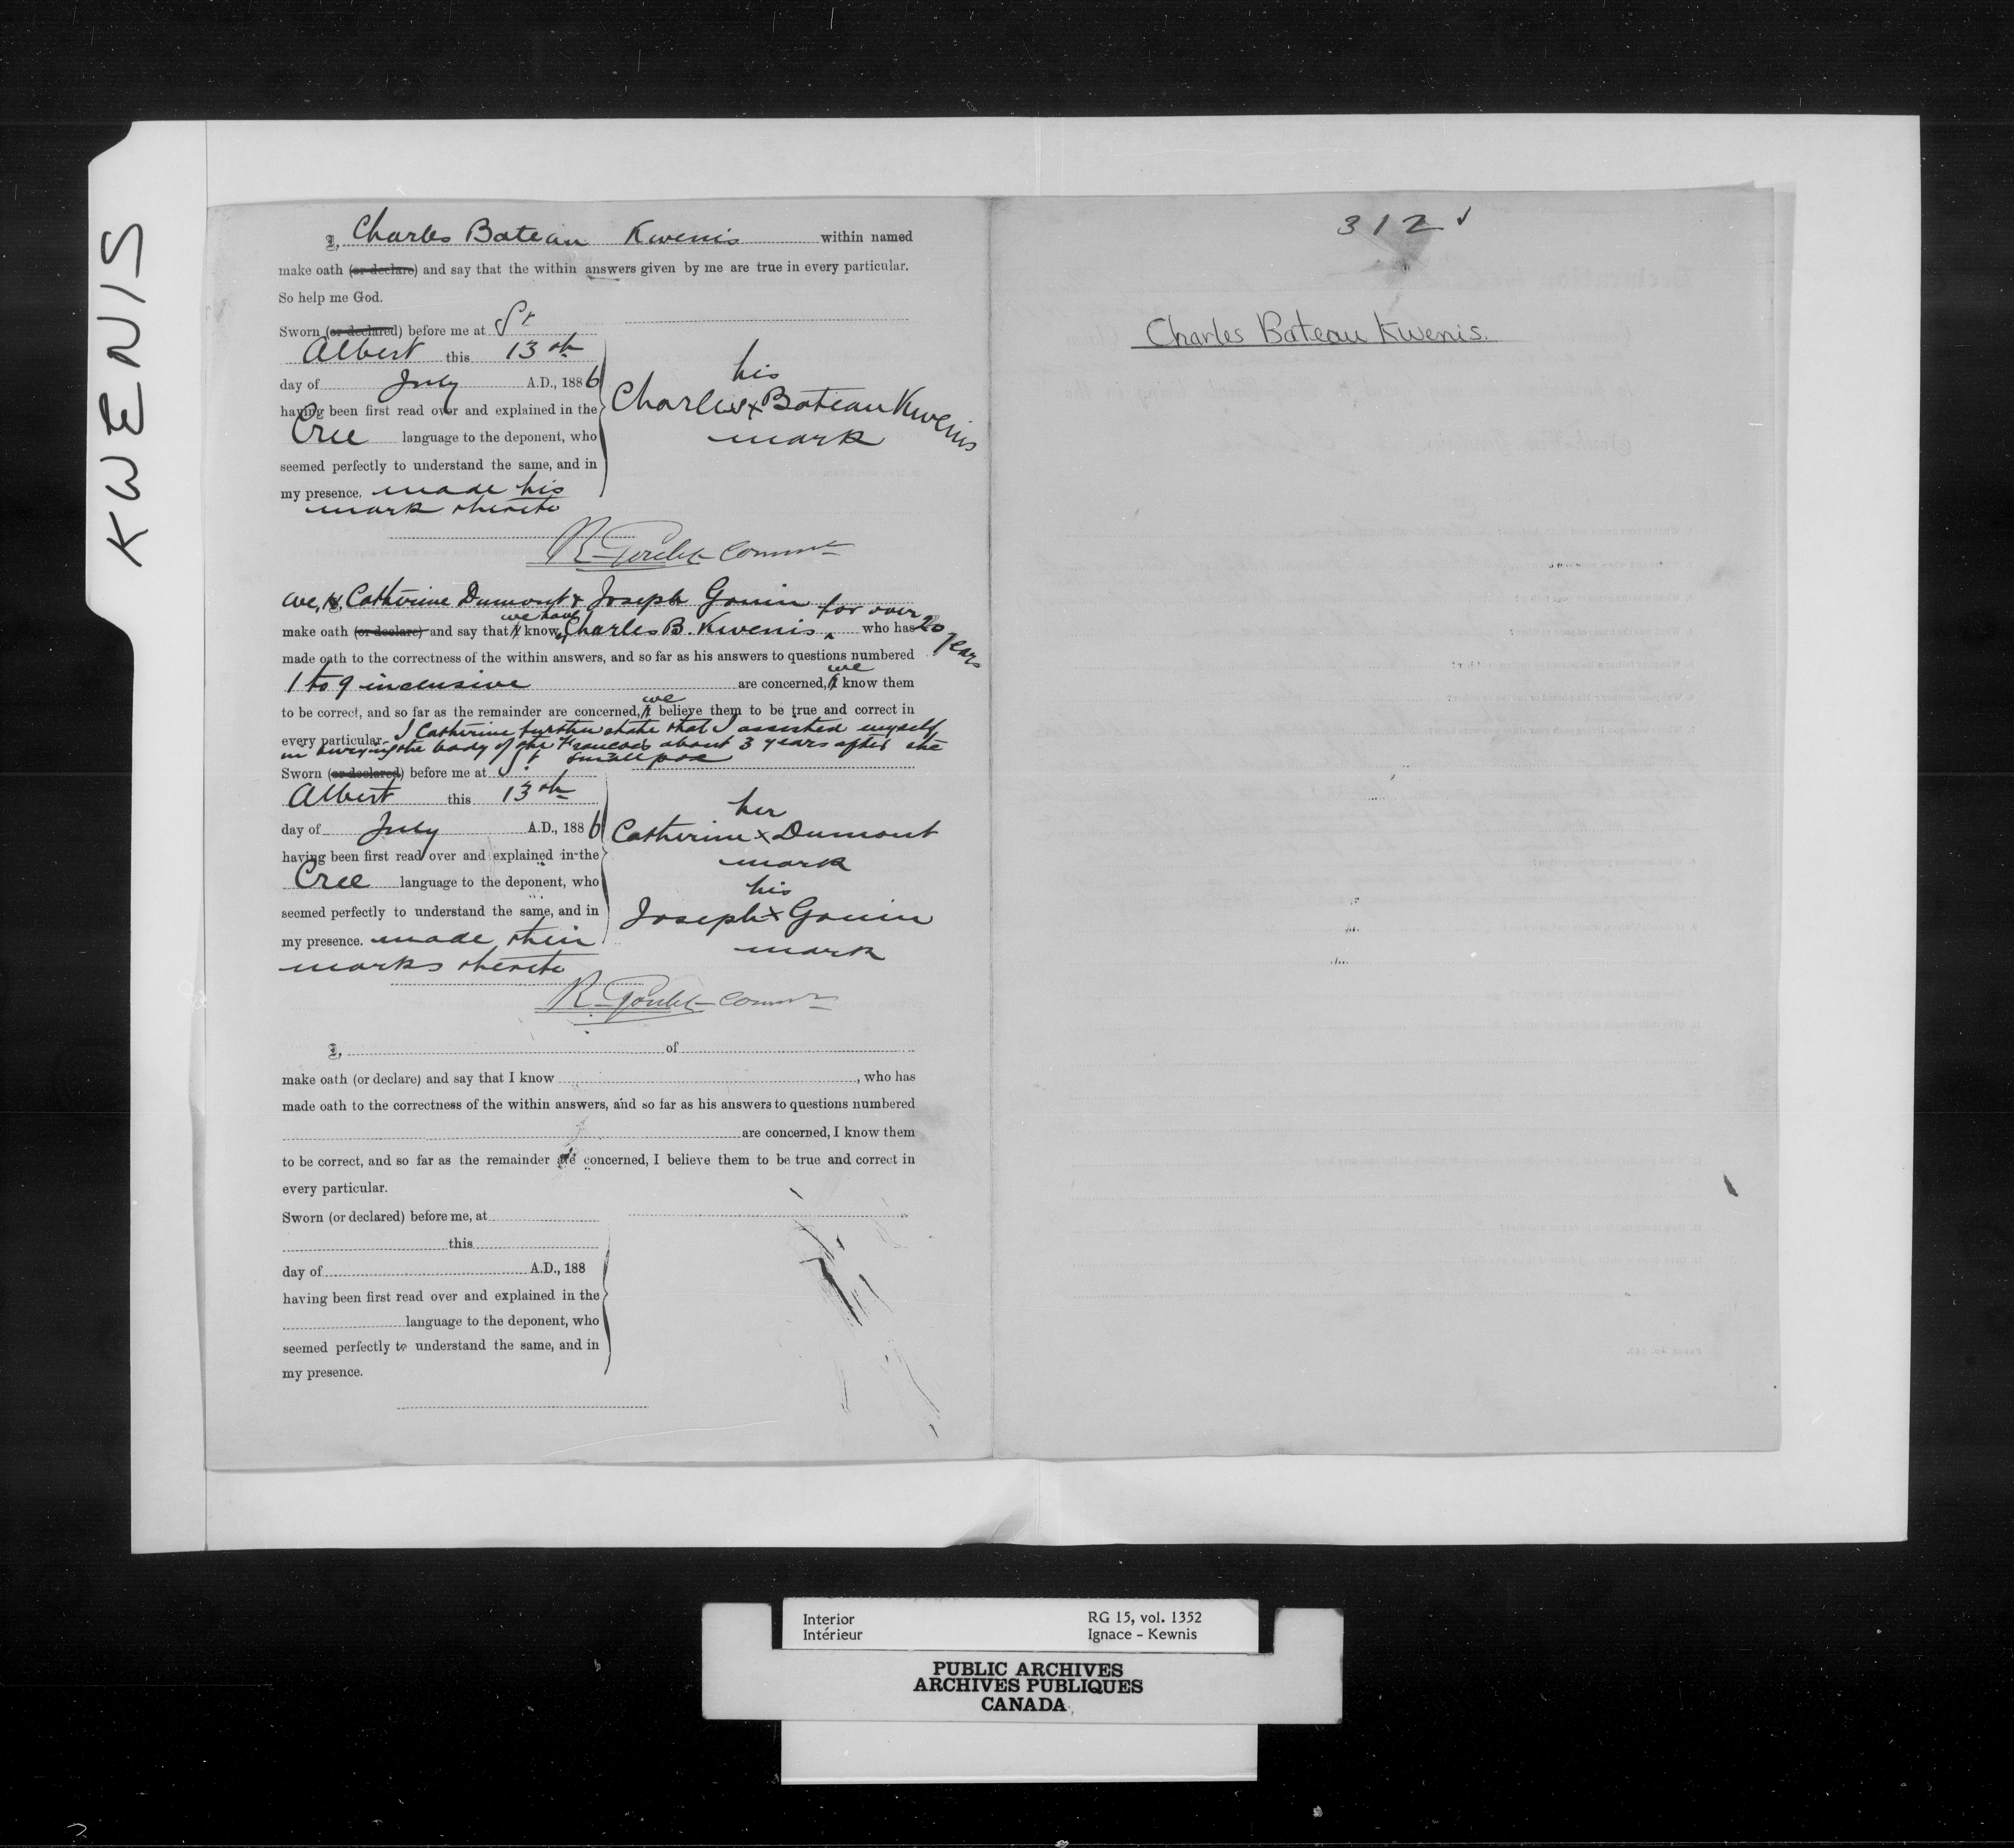 KWENIS
I, Charles Bateau Kwenis within named
make oath (or declare) and say that the within answers given by me are true in every particular.
So help me God.
Sworn (or declared) before me at St
Albert this 13th
day of July A.D., 1886
having been first read over and explained in the
Cree language to the deponent, who
seemed perfectly to understand the same, and in
my presence. made his
mark thereto
his
Charles x Bateau Kwenis
mark
R. Goulet Commr
We, I, Catherine Dumont & Joseph Gouin for over 20 years
we have
make oath (or declare) and say that I know Charles B. Kwenis, who has
made oath to the correctness of the within answers, and so far as his answers to questions numbered
we
1 to 9 inclusive are concerned, I know them
we
to be correct, and so far as the remainder are concerned, I believe them to be true and correct in
every particular. I Catherine further state that I assisted myself
in burying the body of the Francois about 3 years after the
smallpox
Sworn (or declared) before me at St
Albert this 13th
day of July A.D., 1886
having been first read over and explained in the
Cree language to the deponent, who
seemed perfectly to understand the same, and in
my presence. made their
marks thereto
her
Catherine x Dumont
mark
his
Joseph x Gouin
mark
R. Goulet Commr
I, of
make oath (or declare) and say that I know , who has
made oath to the correctness of the within answers, and so far as his answers to questions numbered
are concerned, I know them
to be correct, and so far as the remainder are concerned, I believe them to be true and correct in
every particular.
Sworn (or declared) before me, at
this
day of A.D., 188
having been first read over and explained in the
language to the deponent, who
seemed perfectly to understand the same, and in
my presence.
312
Charles Bateau Kwenis.
Interior RG 15, vol. 1352
Intérieur Ignace - Kewnis
PUBLIC ARCHIVES
ARCHIVES PUBLIQUES
CANADA